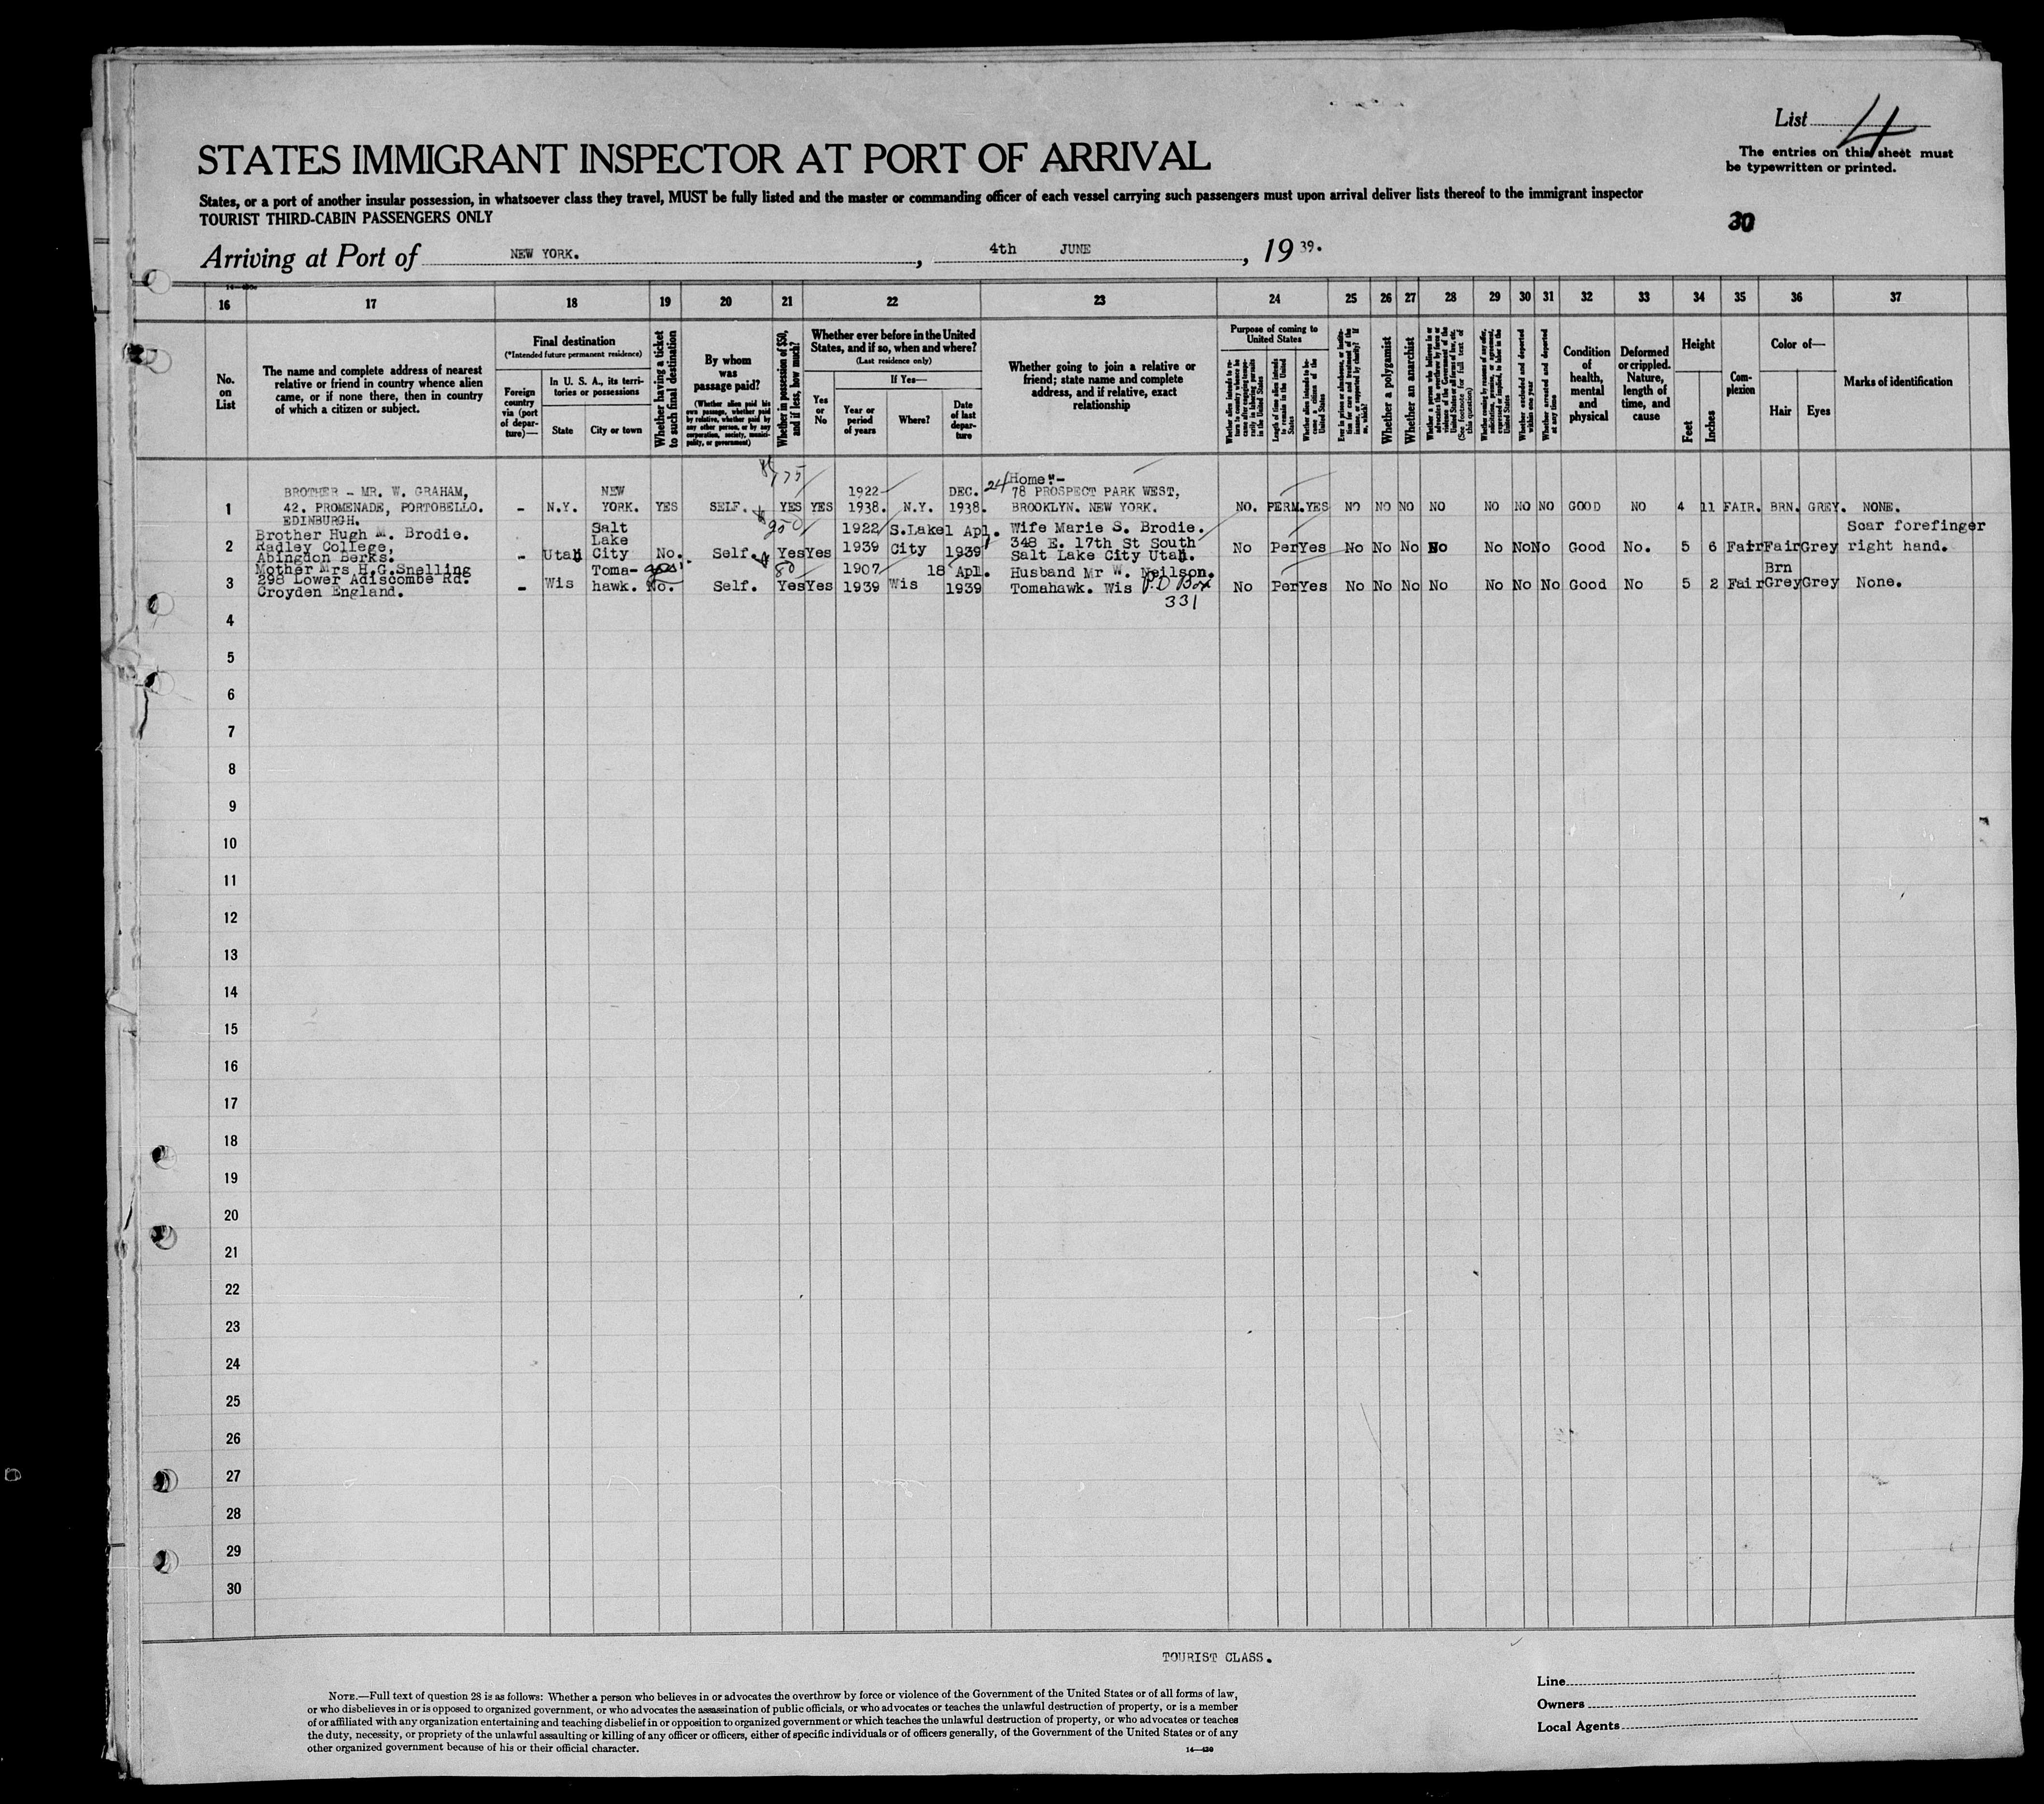 List 4
STATES IMMIGRANT INSPECTOR AT PORT OF ARRIVAL
The entries on this sheet must
be typewritten or printed.
States, or a port of another insular possession, in whatsoever class they travel, MUST be fully listed and the master or commanding officer of each vessel carrying such passengers must upon arrival deliver lists thereof to the immigrant inspector
TOURIST THIRD-CABIN PASSENGERS ONLY
30
Arriving at Port of NEW YORK. , 4th JUNE , 19 39.
16 17 18 19 20 21 22 23 24 25 26 27 28 29 30 31 32 33 34 35 36 37
No. on List
The name and complete address of nearest
relative or friend in country whence alien
came, or if none there, then in country
of which a citizen or subject.
Final destination
(*Intended future permanent residence)
Foreign country via (port of departure)—
In U. S. A., its territories or possessions
State
City or town
Whether having a ticket to such final destination
By whom was passage paid?
(Whether alien paid his own passage, whether paid by relative, whether paid by any other person, or by any corporation, society, municipality, or government)
Whether in possession of $50, and if less, how much?
Whether ever before in the United
States, and if so, when and where?
(Last residence only)
Yes or No
If Yes—
Year or period of years
Where?
Date of last departure
Whether going to join a relative or
friend; state name and complete
address, and if relative, exact
relationship
Purpose of coming to United States
Length of time alien intends to remain in the United States
Whether alien intends to become a citizen of the United States
Whether a polygamist
Whether an anarchist
(See footnote for full text of this question)
Whether excluded and deported within one year
Whether arrested and deported at any time
Condition of health, mental and physical
Deformed or crippled. Nature, length of time, and cause
Height
Feet
Inches
Complexion
Color of—
Hair
Eyes
Marks of identification
1 BROTHER - MR. W. GRAHAM, 42. PROMENADE, PORTOBELLO. EDINBURGH. - N.Y. NEW YORK. YES SELF. YES YES 1922 1938. N.Y. DEC. 1938. 24 Home:- 78 PROSPECT PARK WEST, BROOKLYN. NEW YORK. NO. PERM. YES NO NO NO NO NO NO NO GOOD NO 4 11 FAIR. BRN. GREY. NONE.
2 Brother Hugh M. Brodie. Radley College, Abingdon Berks. - Utah Salt Lake City No. Self. 950 Yes Yes 1922 1939 S.Lake City 1 Apl. 1939 Wife Marie S. Brodie. 348 E. 17th St South Salt Lake City Utah. No Per Yes No No No No No No No Good No. 5 6 Fair Fair Grey Scar forefinger right hand.
3 Mother Mrs H.G.Snelling 298 Lower Adiscombe Rd. Croyden England. - Wis Toma-hawk. No. Self. 80 Yes Yes 1907 1939 Wis 18 Apl. 1939 Husband Mr W. Neilson. Tomahawk. Wis P.O Box 331 No Per Yes No No No No No No No Good No 5 2 Fair Brn Grey Grey None.
4
5
6
7
8
9
10
11
12
13
14
15
16
17
18
19
20
21
22
23
24
25
26
27
28
29
30
TOURIST CLASS.
Line
Owners
Local Agents
NOTE.—Full text of question 28 is as follows: Whether a person who believes in or advocates the overthrow by force or violence of the Government of the United States or of all forms of law,
or who disbelieves in or is opposed to organized government, or who advocates the assassination of public officials, or who advocates or teaches the unlawful destruction of property, or is a member
of or affiliated with any organization entertaining and teaching disbelief in or opposition to organized government or which teaches the unlawful destruction of property, or who advocates or teaches
the duty, necessity, or propriety of the unlawful assaulting or killing of any officer or officers, either of specific individuals or of officers generally, of the Government of the United States or of any
other organized government because of his or their official character.
14—430